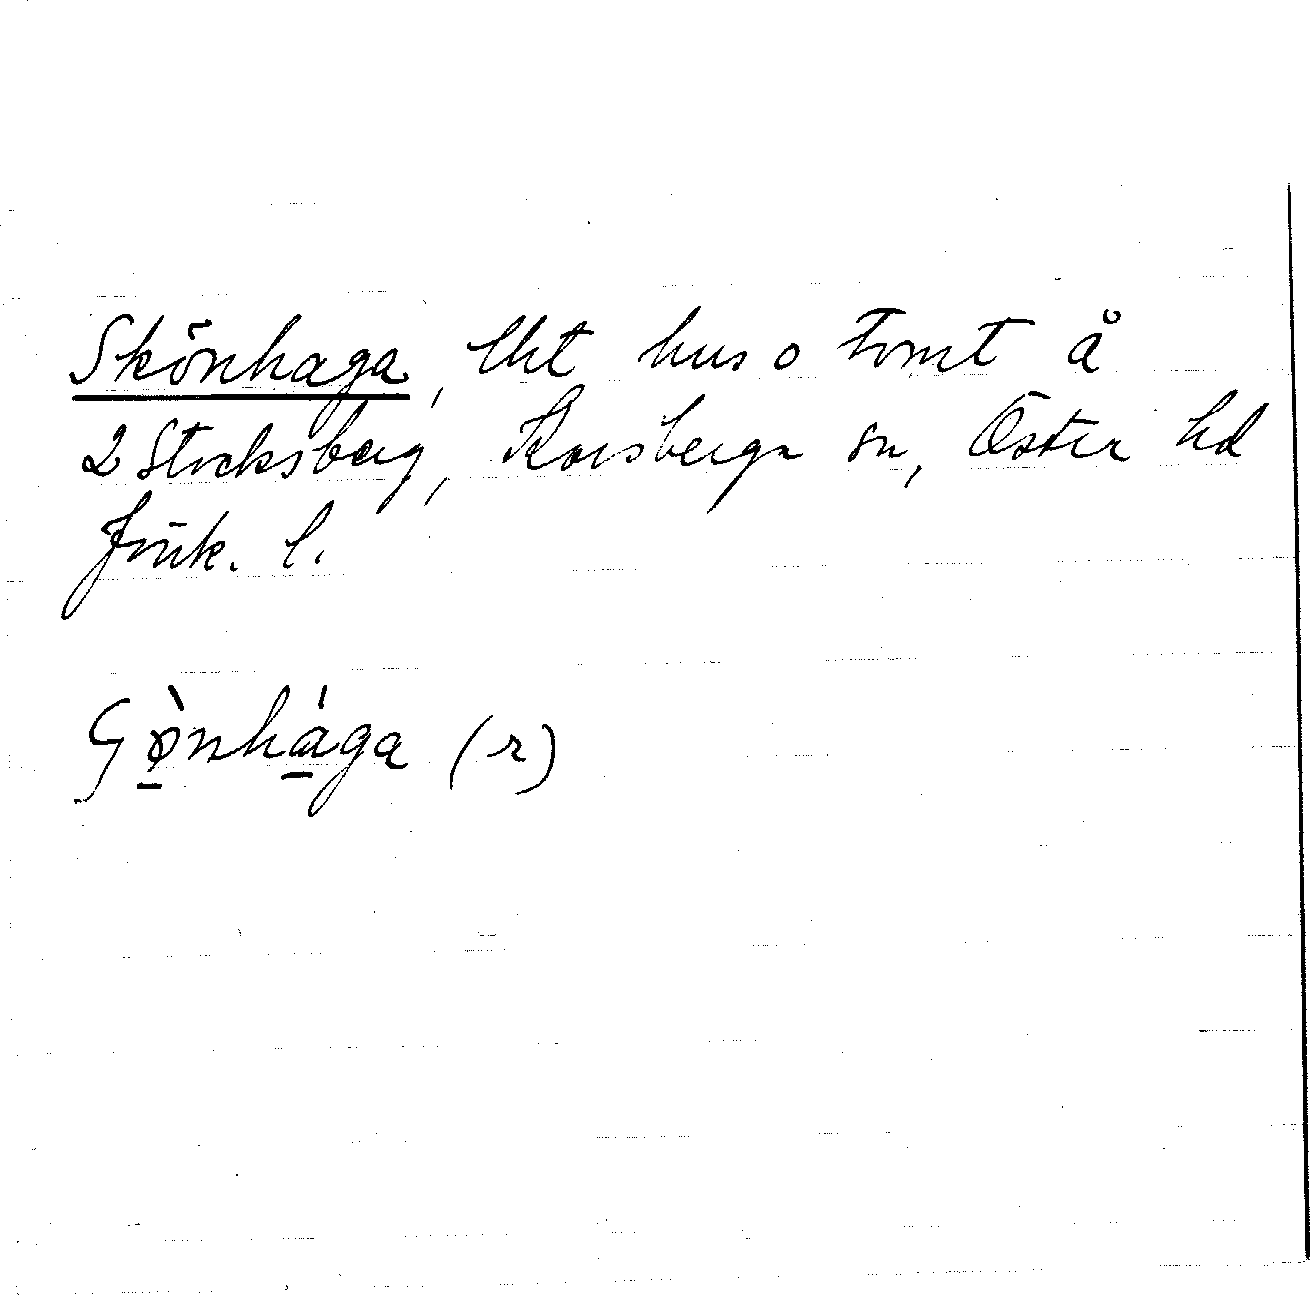 Skönhaga, lht hus o tomt å
2 Stocksberg, Korsberga sn, Östra hd
Jönk. l.
ʃø̱̀nhá̱ga (r)